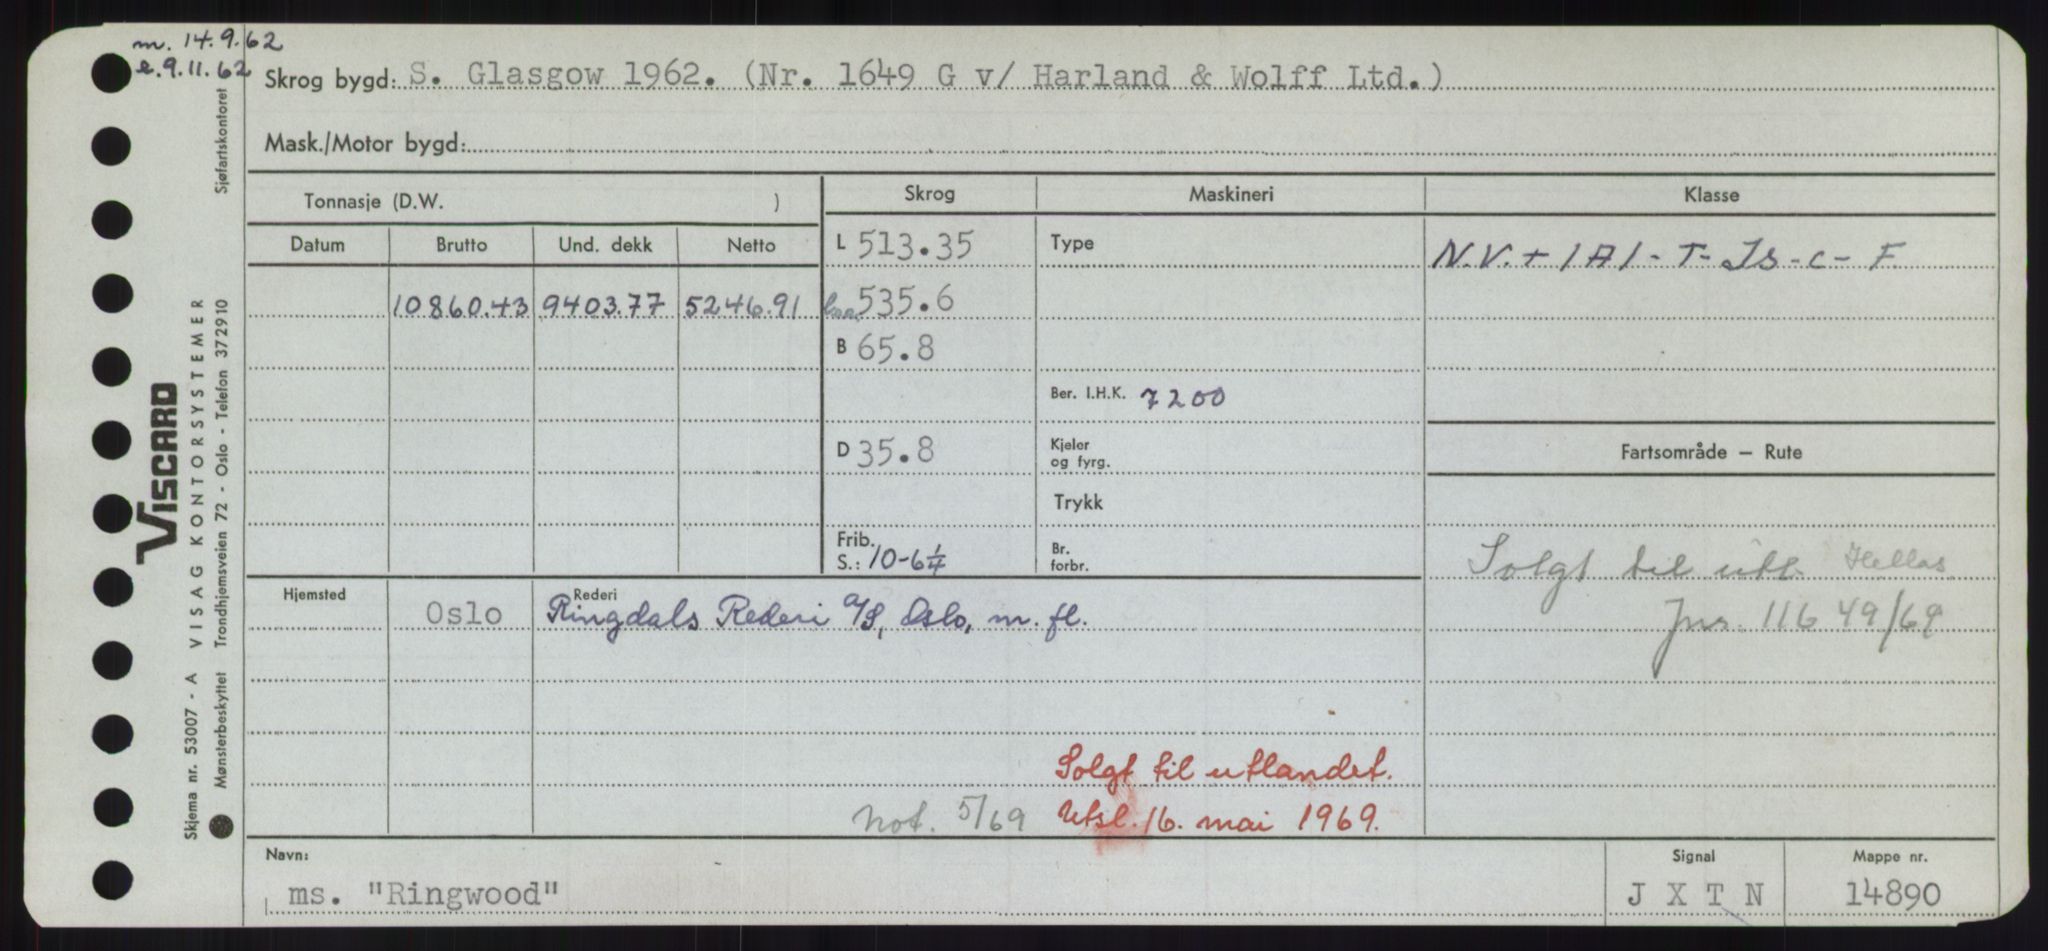 m. 14.9.62
e. 9.11.62
Skrog bygd: S. Glasgow 1962. (Nr. 1649 G v/ Harland & Wolff Ltd.)
Mask./Motor bygd:
Tonnasje (D.W. )
Skrog Maskineri Klasse
Datum Brutto Und. dekk Netto
L 513.35 Type N.V. + 1A1 - T - Is - C - F.
10860.43 9403.77 5246.91 loa 535.6
B 65.8
Ber. I.H.K. 7200
D 35.8 Kjeler og fyrg. Fartsområde – Rute
Trykk
Frib. S.: 10-6¼ Br. forbr.
Solgt til utl. Hellas
Jnr. 11649/69
Hjemsted Oslo Rederi Ringdals Rederi A/S, Oslo, m. fl.
Solgt til utlandet.
Not. 5/69 Utsl. 16. mai 1969.
Navn: ms. "Ringwood" Signal J X T N Mappe nr. 14890
VISCARD
Skjema nr. 53007 - A VISAG KONTORSYSTEMER
Mønsterbeskyttet Trondhjemsveien 72 - Oslo - Telefon 372910 Sjøfartskontoret